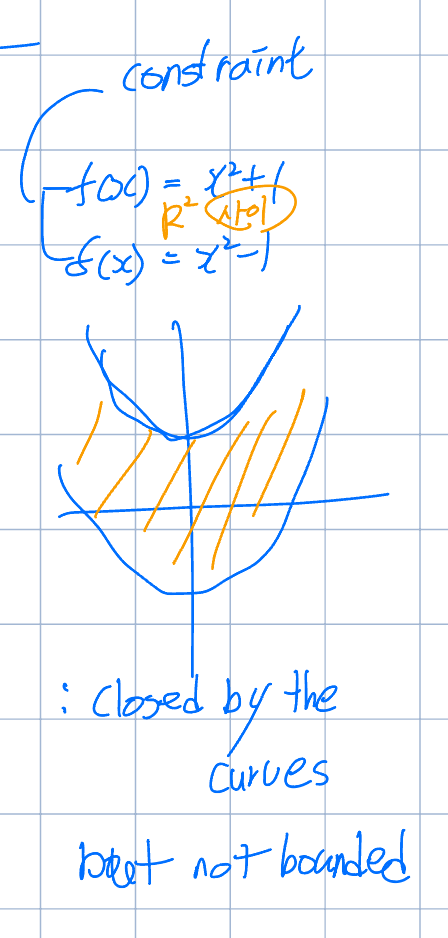 constraint
f(x) = x²+1
R² 사이
f(x) = x²-1
: closed by the
curves
but not bounded